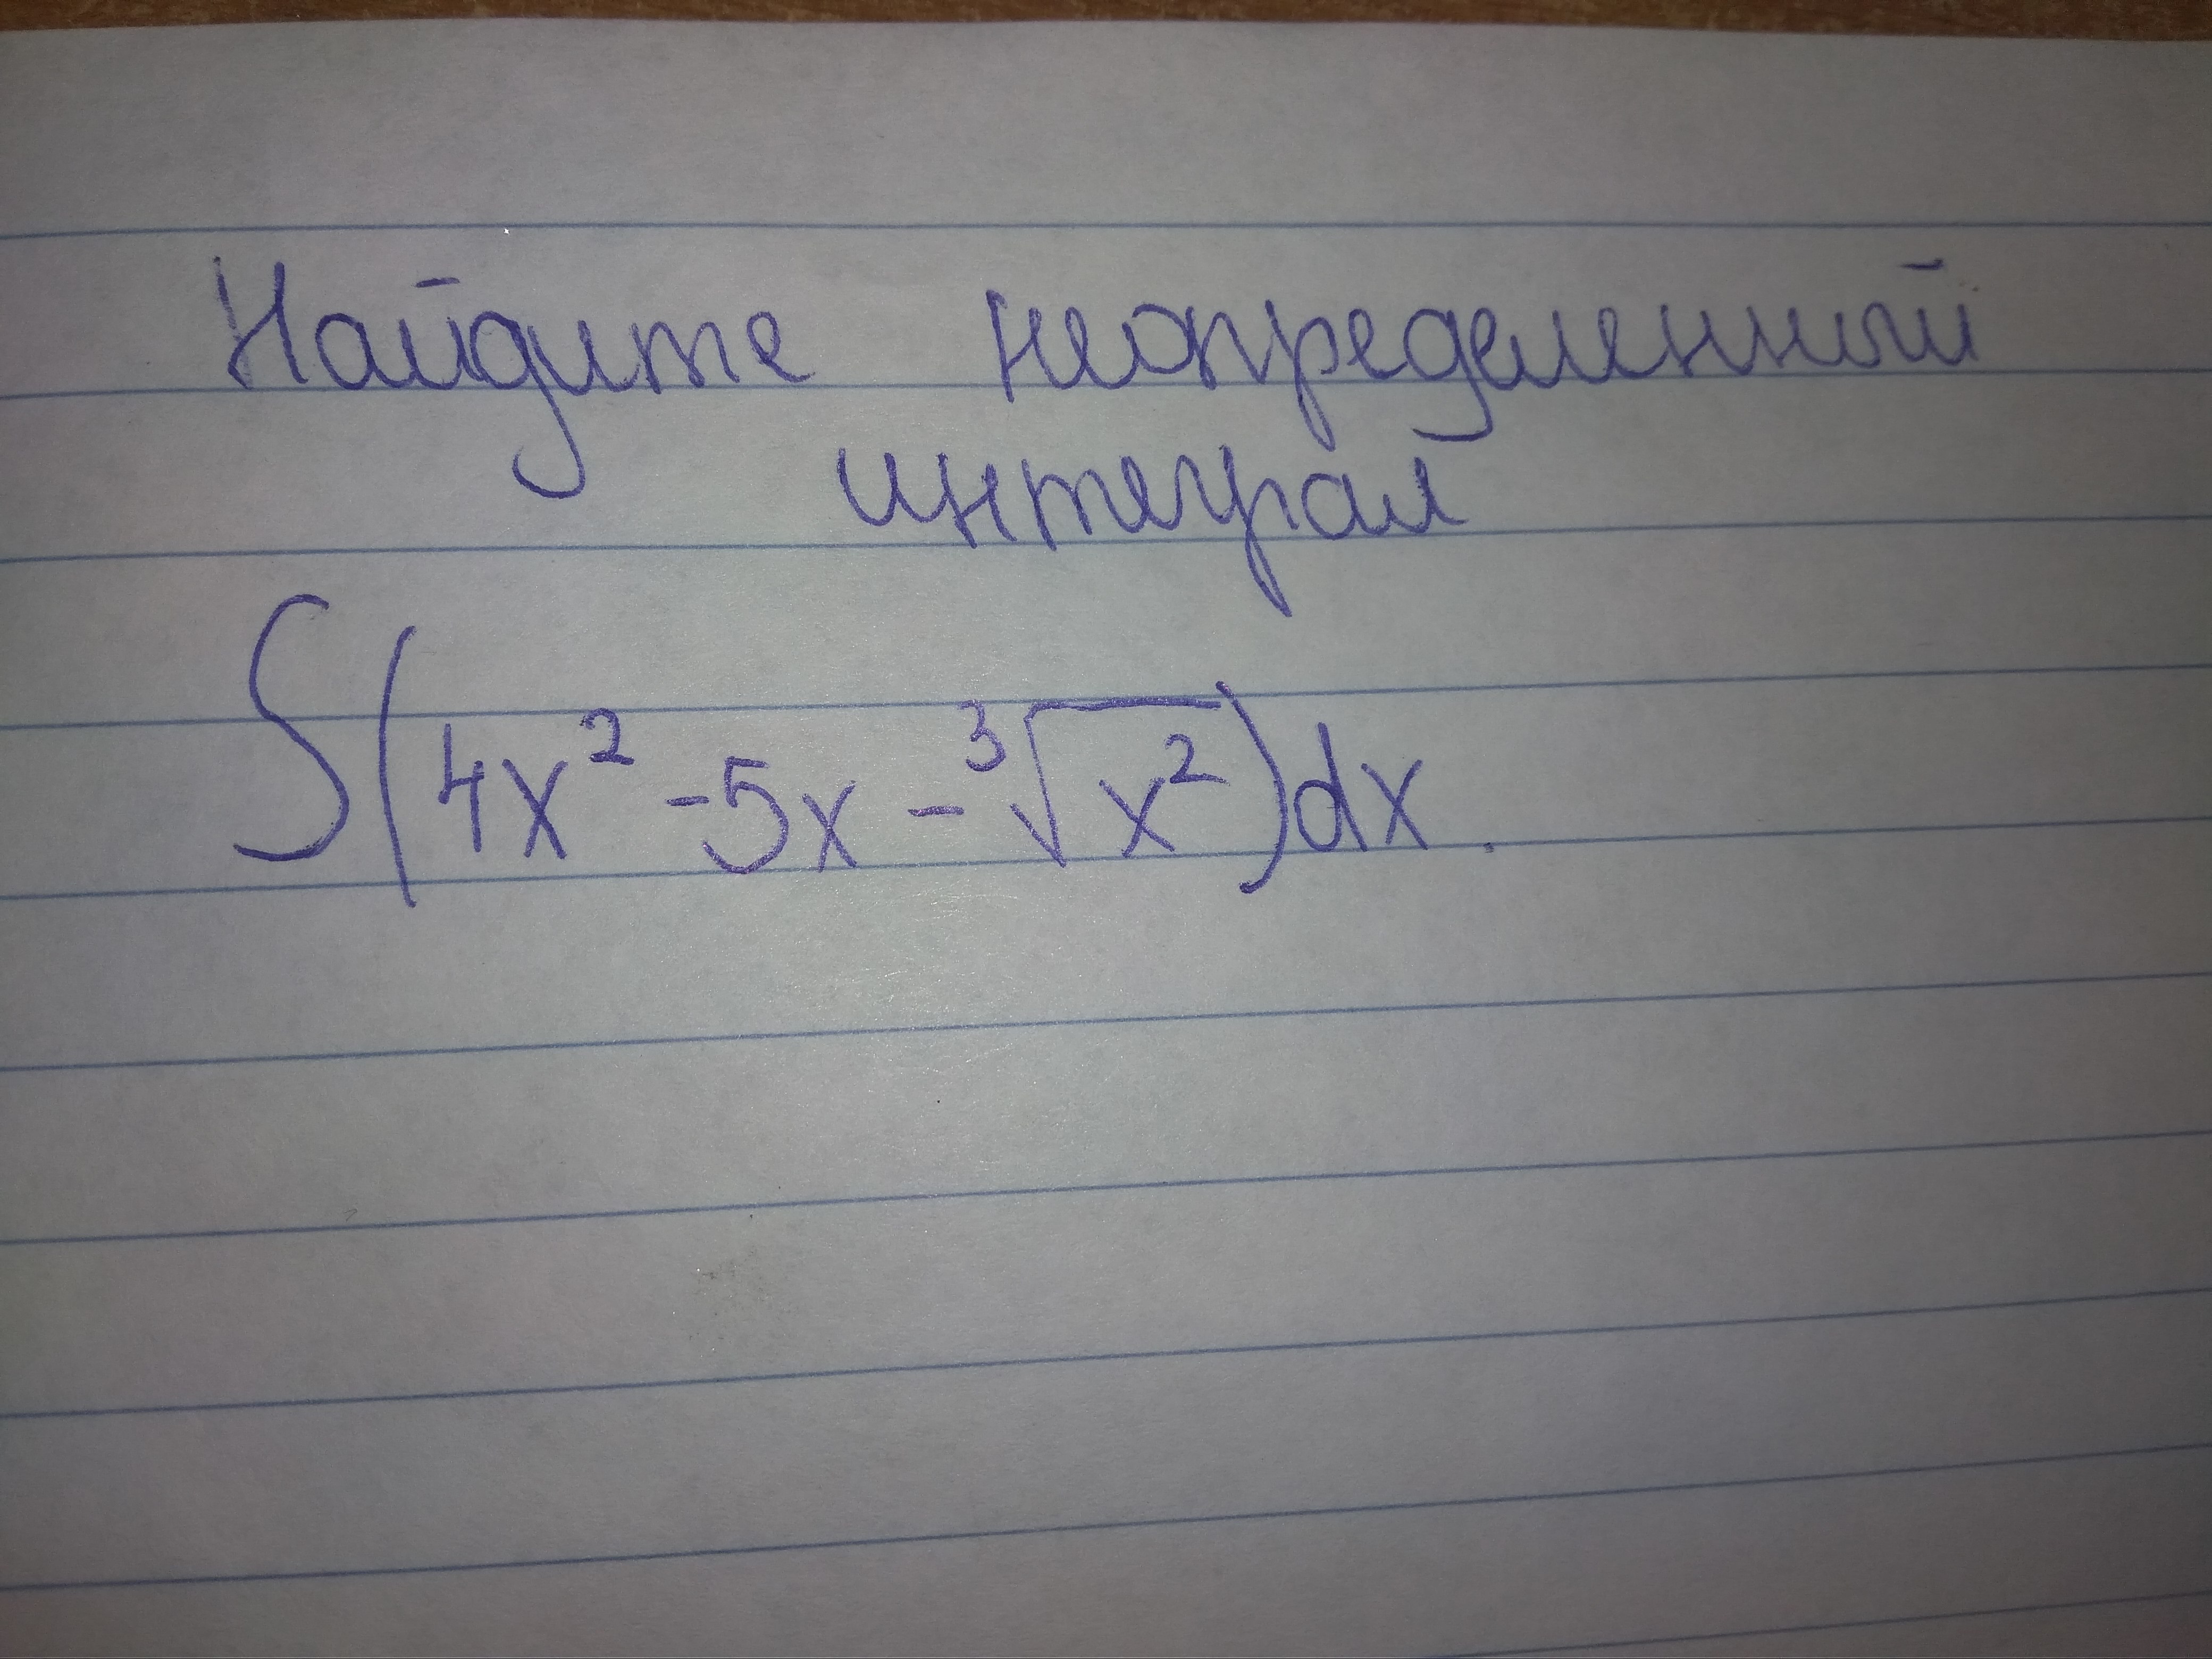 Найдите неопределенный
интеграл
∫(4x² -5x - ³√x²)dx.